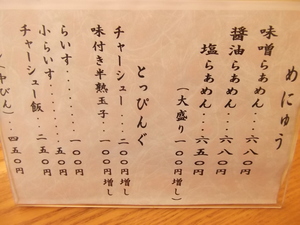 めにゅう
味噌らあめん・・・六八〇円
醤油らあめん・・・六五〇円
塩らあめん・・・六五〇円
（大盛り 一〇〇円増し）
とっぴんぐ
チャーシュー・・二〇〇円増し
味付き半熟玉子・・一〇〇円増し
らいす・・・・・・一〇〇円
小らいす・・・・・五〇円
チャーシュー飯・・二五〇円
（中びん）・・・四五〇円